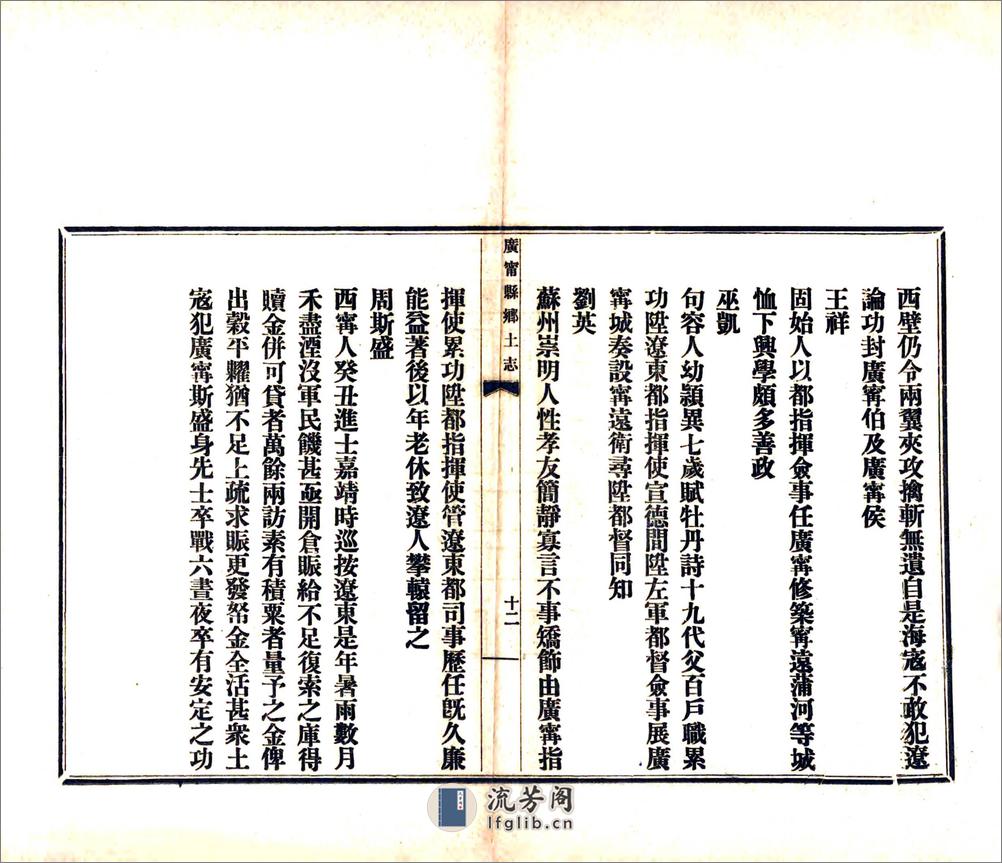 西壁仍令兩翼夾攻擒斬無遺自是海寇不敢犯遼
論功封廣甯伯及廣甯侯
王祥
固始人以都指揮僉事任廣甯修築甯遠蒲河等城
恤下興學頗多善政
巫凱
句容人幼穎異七歲賦牡丹詩十九代父百戶職累
功陞遼東都指揮使宣德間陞左軍都督僉事展廣
甯城奏設甯遠衛尋陞都督同知
劉英
蘇州崇明人性孝友簡靜寡言不事矯飾由廣甯指
廣甯縣鄉土志
十二
揮使累功陞都指揮使管遼東都司事歷任旣久廉
能益著後以年老休致遼人攀轅留之
周斯盛
西甯人癸丑進士嘉靖時巡按遼東是年暑雨數月
禾盡湮沒軍民饑甚亟開倉賑給不足復索之庫得
贖金併可貸者萬餘兩訪素有積粟者量予之金俾
出穀平糶猶不足上疏求賑更發帑金全活甚衆土
寇犯廣甯斯盛身先士卒戰六晝夜卒有安定之功
流芳阁
lfglib.cn